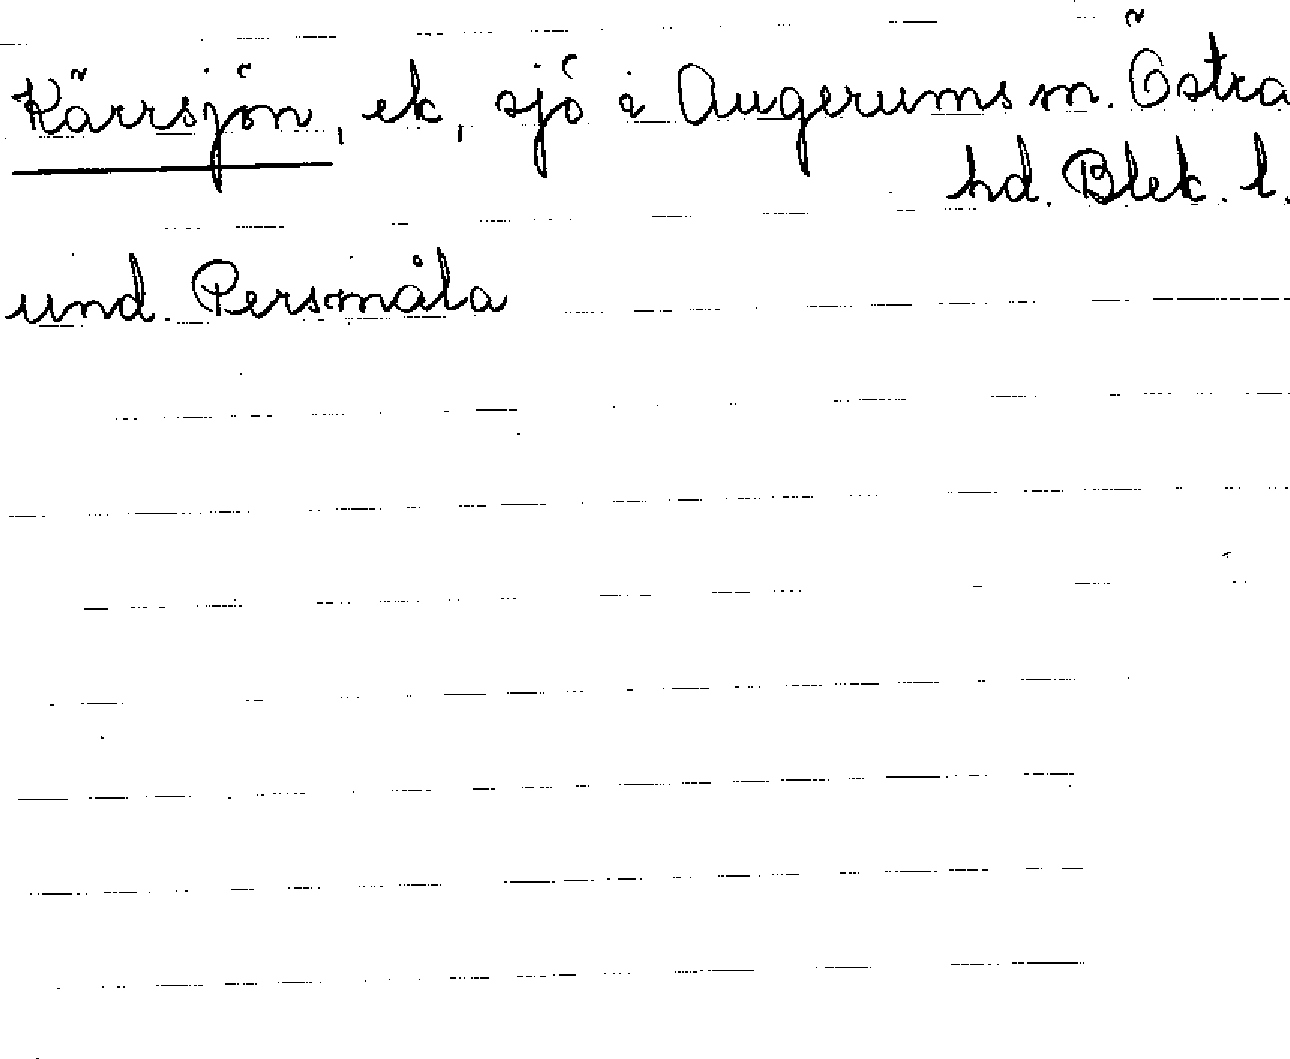 Kärrsjön, ek, sjö i Augerums sn. Östra
hd. Blek. l.
und. Persmåla